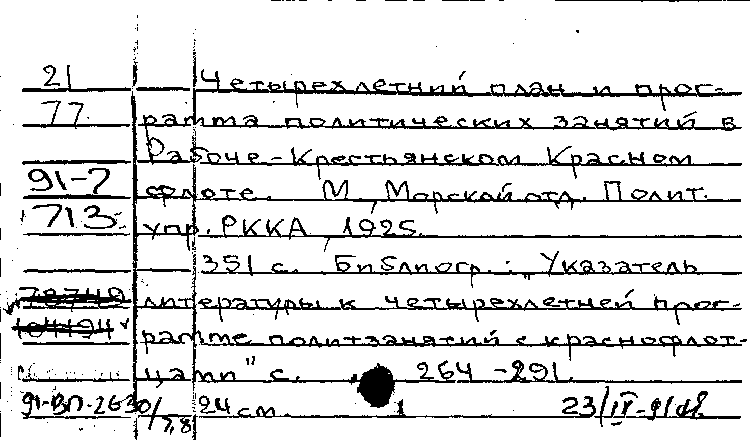 21 Четырехлетний план и прог-
77 рамма политических занятий в
Рабоче-Крестьянском Красном
91-7 флоте. М., Морской отд. Полит.
713 упр. РККА, 1925.
351 с. Библиогр.: „Указатель
78748 литературы к четырехлетней прог-
рамме политзанятий с краснофлот-
цами" с. 264-291.
91-ВП-2630/7,8 24 см. 1 23/IV-91